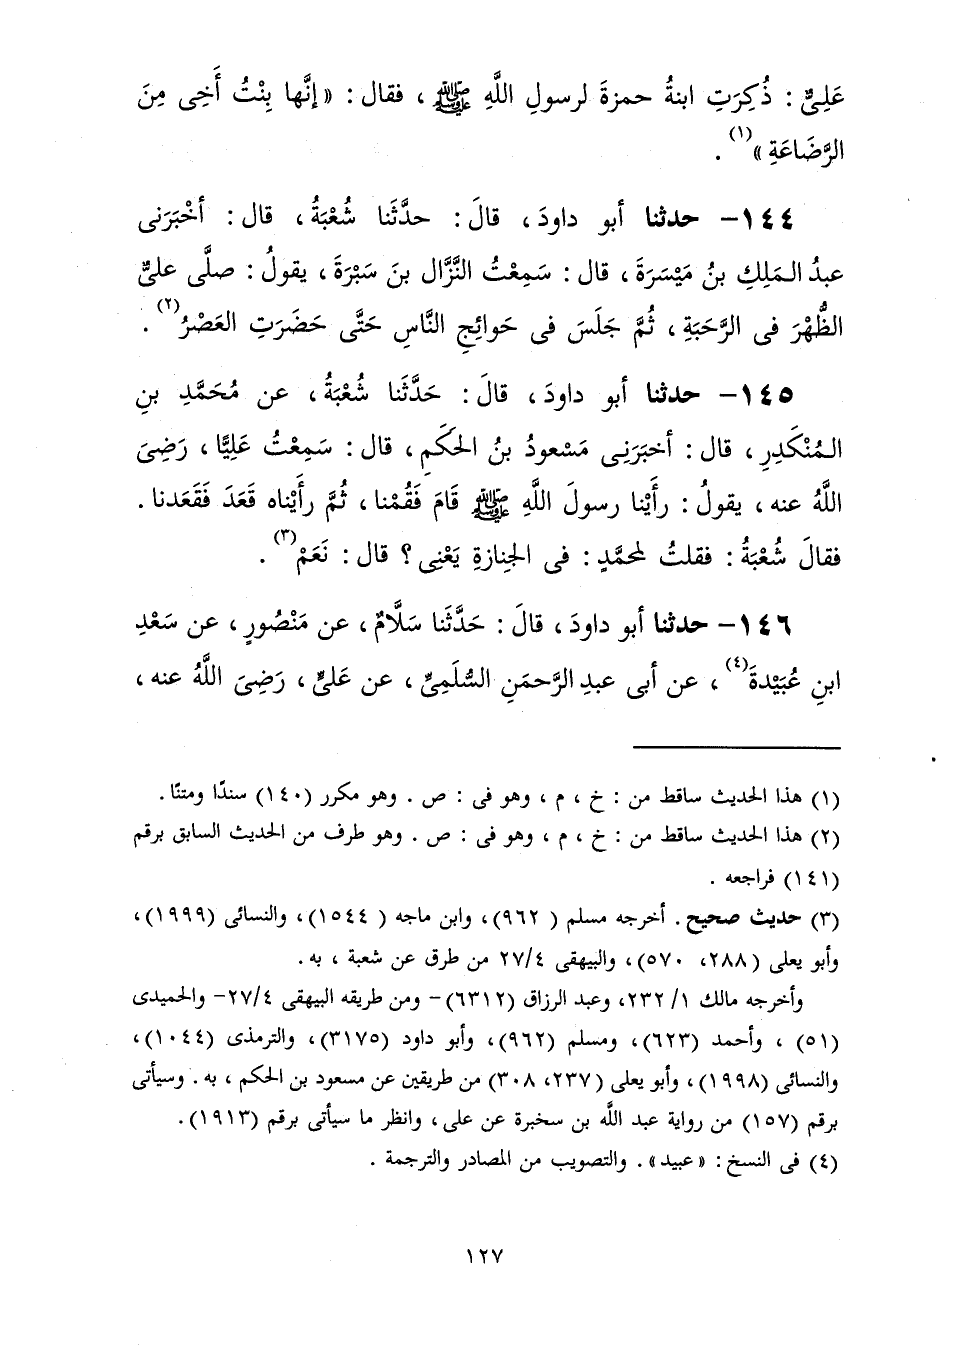 عَلِىٌّ : ذُكِرَتِ ابنةُ حمزةَ لرسولِ اللَّهِ ﷺ ، فقال : « إنَّها بِنْتُ أَخِى مِنَ
الرَّضَاعَةِ »(١) .
١٤٤- حدثنا أبو داودَ ، قالَ : حدَّثَنا شُعْبَةُ ، قال : أخْبَرَنى
عبدُ الـمَلِكِ بنُ مَيْسَرَةَ ، قال : سَمِعْتُ النَّزَّال بنَ سَبْرَةَ ، يقولُ : صلَّى علىٌّ
الظُّهْرَ فى الرَّحَبَةِ ، ثُمَّ جَلَسَ فى حَوائِجِ النَّاسِ حَتَّى حَضَرَتِ العَصْرُ(٢) .
١٤٥- حدثنا أبو داودَ ، قالَ : حَدَّثَنا شُعْبَةُ ، عن مُحَمَّدِ بنِ
الـمُنْكَدِرِ ، قال : أخبَرَنِى مَسْعودُ بنُ الحَكَمِ ، قال : سَمِعْتُ عَلِيًّا ، رَضِىَ
اللَّهُ عنه ، يقولُ : رأَيْنا رسولَ اللَّهِ ﷺ قَامَ فَقُمْنا ، ثُمَّ رأَيْناه قَعَدَ فَقَعَدنا .
فقالَ شُعْبَةُ : فقلتُ لمحمَّدٍ : فى الجِنازةِ يَعْنِى ؟ قال : نَعَمْ(٣) .
١٤٦- حدثنا أبو داودَ ، قالَ : حَدَّثَنا سَلَّامٌ ، عن مَنْصُورٍ ، عن سَعْدِ
ابنِ عُبَيْدةَ(٤) ، عن أبى عبدِ الرَّحمَنِ السُّلَمِىِّ ، عن عَلىٍّ ، رَضِىَ اللَّهُ عنه ،
(١) هذا الحديث ساقط من : خ ، م ، وهو فى : ص . وهو مكرر (١٤٠) سندًا ومتنًا .
(٢) هذا الحديث ساقط من : خ ، م ، وهو فى : ص . وهو طرف من الحديث السابق برقم
(١٤١) فراجعه .
(٣) حديث صحيح . أخرجه مسلم ( ٩٦٢) ، وابن ماجه ( ١٥٤٤) ، والنسائى (١٩٩٩) ،
وأبو يعلى (٢٨٨، ٥٧٠) ، والبيهقى ٢٧/٤ من طرق عن شعبة ، به .
وأخرجه مالك ١/ ٢٣٢، وعبد الرزاق (٦٣١٢) - ومن طريقه البيهقى ٢٧/٤ - والحميدى
(٥١) ، وأحمد (٦٢٣) ، ومسلم (٩٦٢) ، وأبو داود (٣١٧٥) ، والترمذى (١٠٤٤) ،
والنسائى (١٩٩٨) ، وأبو يعلى (٢٣٧، ٣٠٨) من طريقين عن مسعود بن الحكم ، به . وسيأتى
برقم (١٥٧) من رواية عبد اللَّه بن سخبرة عن على ، وانظر ما سيأتى برقم (١٩١٣) .
(٤) فى النسخ : « عبيد» . والتصويب من المصادر والترجمة .
١٢٧